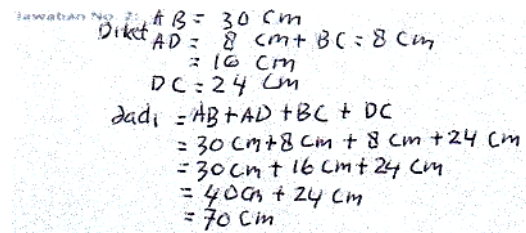 Jawaban No. 2:
Diket AB = 30 cm
AD = 8 cm + BC = 8 cm
= 16 cm
DC = 24 cm
Jadi = AB + AD + BC + DC
= 30 cm + 8 cm + 8 cm + 24 cm
= 30 cm + 16 cm + 24 cm
= 40 cm + 24 cm
= 70 cm